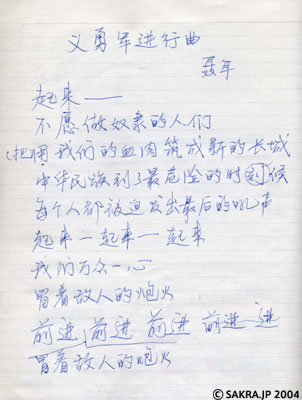 义勇军进行曲
聂耳
起来——
不愿做奴隶的人们
(把用我们的血肉筑成新的长城
中华民族到了最危险的时刻候
每个人都被迫发出最后的吼声
起来一起来一起来
我们万众一心
冒着敌人的炮火
前进 前进 前进 前进 进
冒着敌人的炮火
©SAKRA.JP 2004